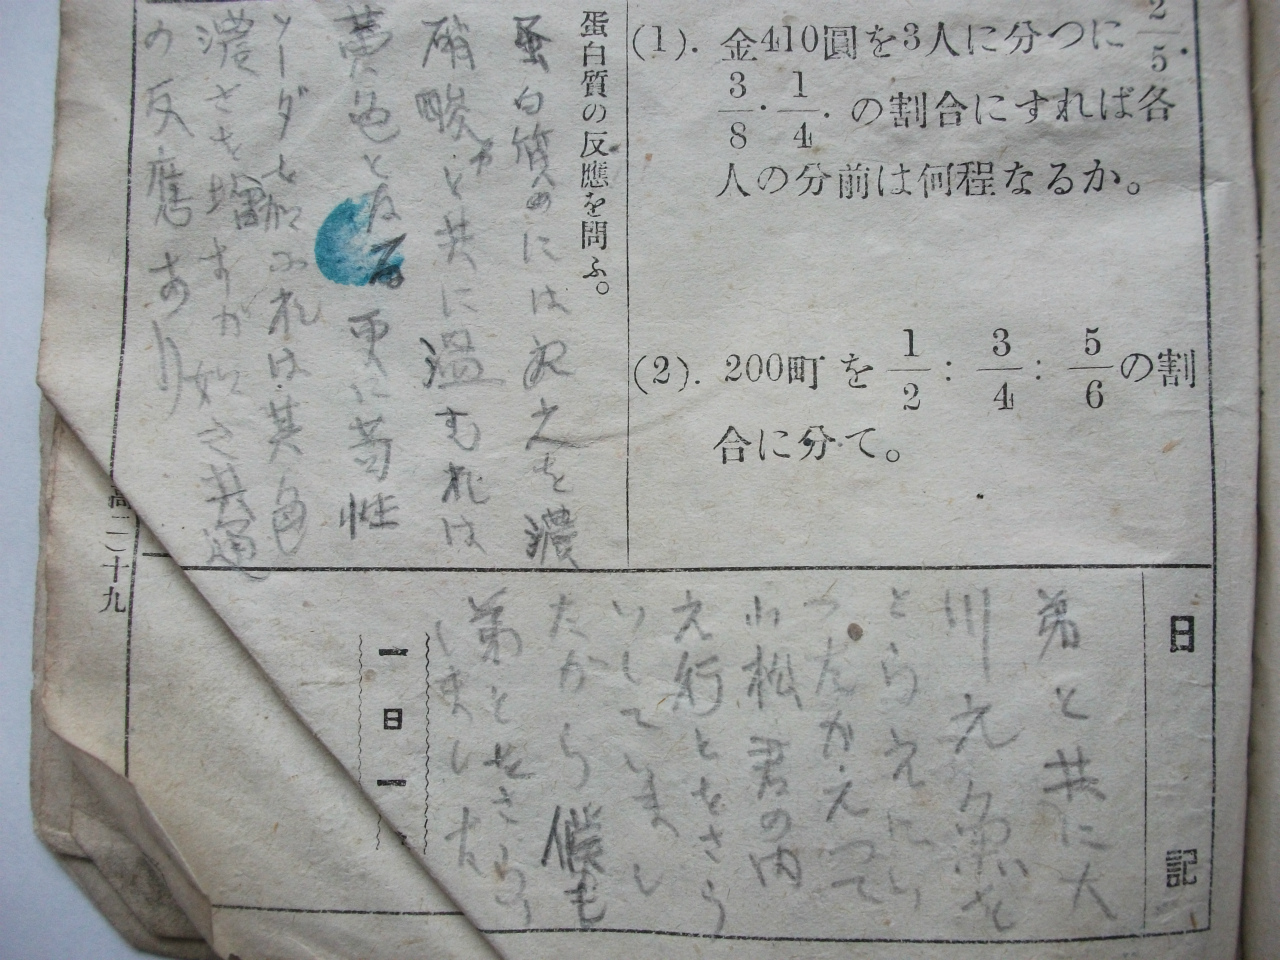 (1). 金410圓を3人に分つに 2/5.
3/8 . 1/4 . の割合にすれば各
人の分前は何程なるか。
(2). 200町を 1/2 : 3/4 : 5/6 の割
合に分て。
蛋白質の反應を問ふ。
蛋白質めには之を濃
硝酸と共に温むれは
黄色となる更に苛性
ソーダを加ふれは其色
濃さを増すが如き共通
の反應あり
日記
弟と共に大
川え魚を
とらえに
つたかえつて
小松君の内
え行とをさら
いしていまし
たから僕も
弟とをさら
いました
一日一
高二)十九